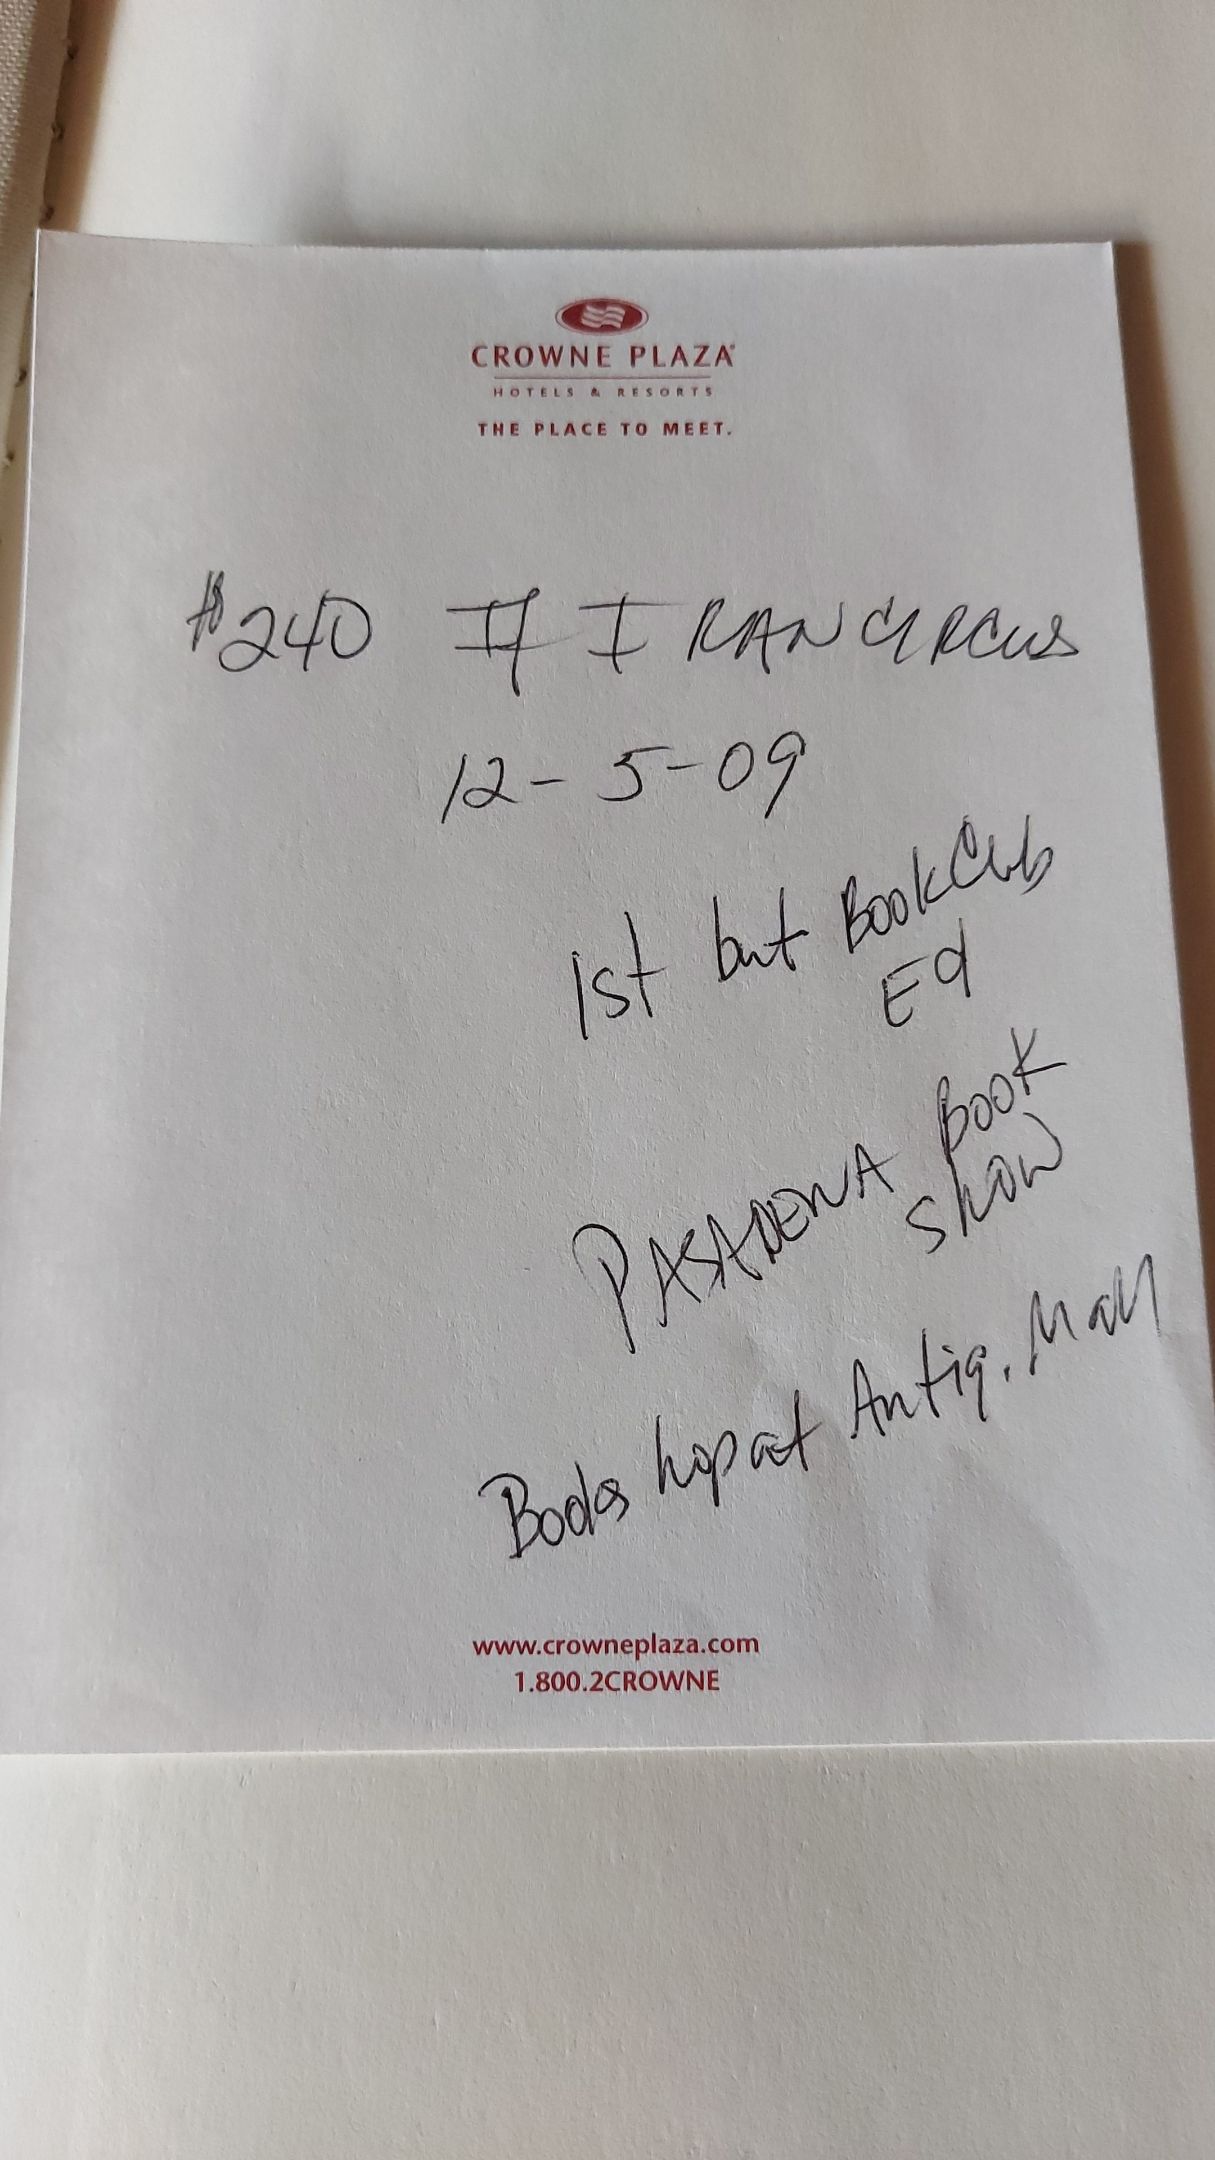 CROWNE PLAZA®
HOTELS & RESORTS
THE PLACE TO MEET.
$240 If I RAN CIRCUS
12-5-09
1st but Book Club
Ed
PASADENA BOOK
SHOW
Bookshop at Antiq. Mall
www.crowneplaza.com
1.800.2CROWNE